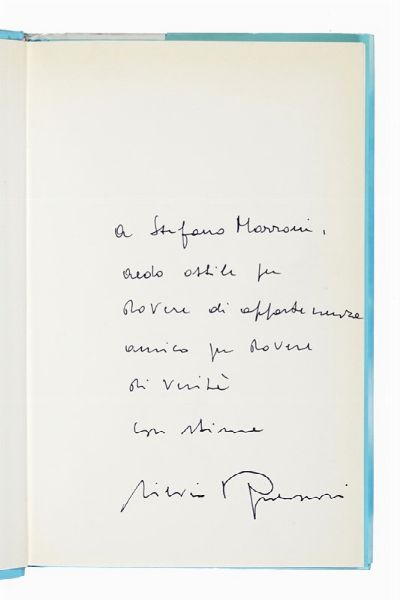 a Stefano Marroni,
credo ostile per
dovere di appartenenza
amico per dovere
di verità
con stima